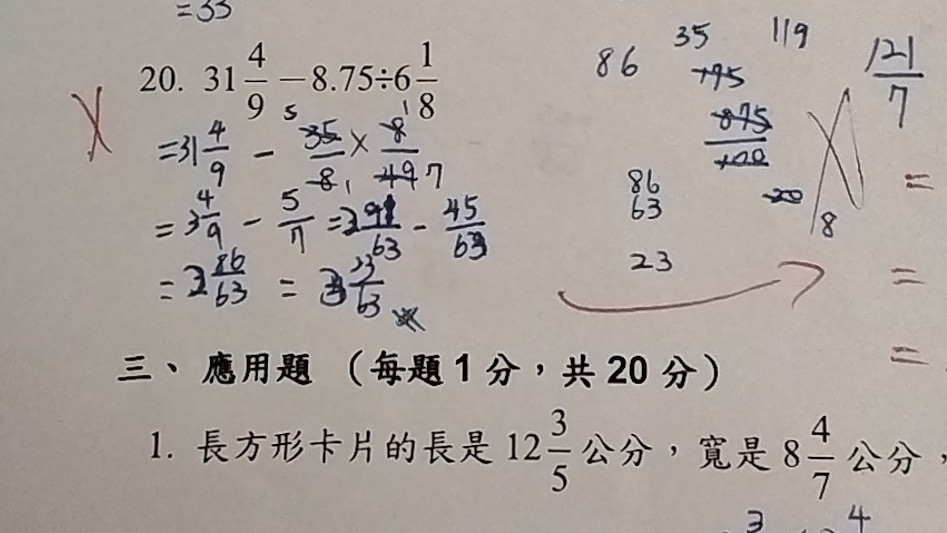 =33
20. 31 4/9 - 8.75÷6 1/8
=31 4/9 - 35/8 × 8/49
5 1 1 7
=3 4/9 - 5/7 = 2 91/63 - 45/63
=2 86/63 = 3 23/63
86 35 119
+75
875/100
86
63
23
20
8
121/7
=
=
=
三、應用題 (每題1分,共20分)
1. 長方形卡片的長是12 3/5公分,寬是8 4/7公分,
3 4